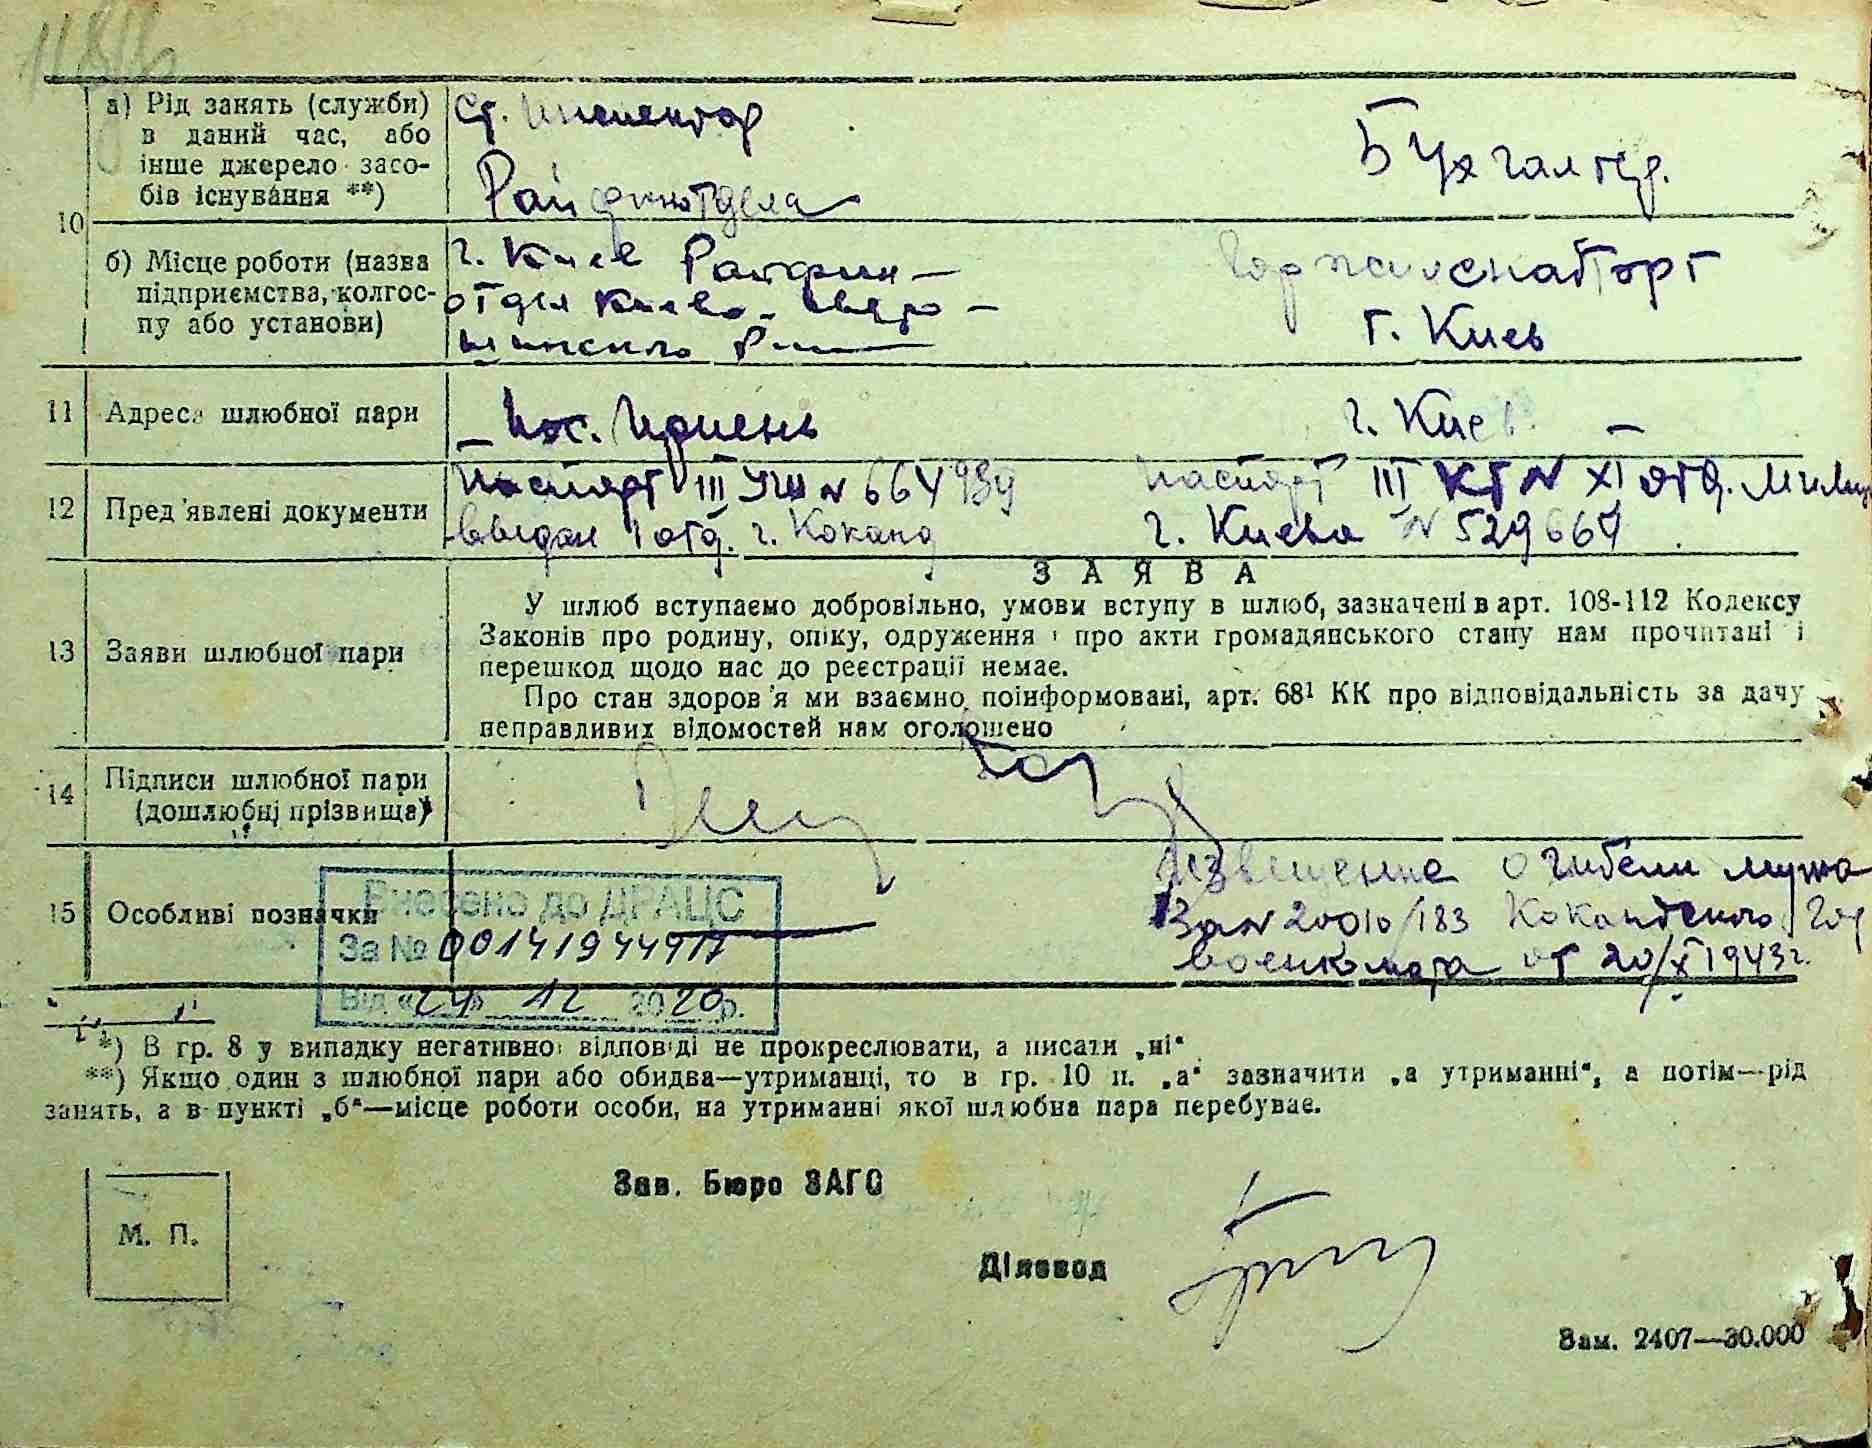 10
а) Рід занять (служби)
в даний час, або
інше джерело засо-
бів існування **)
Ст. Инспектор
Райфинотдела
Бухгалтер.
б) Місце роботи (назва
підприємства, колгос-
пу або установи)
г. Киев Райфин-
отдел Киево-Свято-
шинского Р
г. Киев
11 Адреса шлюбної пари
Пос. Ирпень
г. Киев. —
12 Пред'явлені документи
Паспорт III УШ N 664939
выдан 1 отд. г. Коканд
Паспорт III КТ N XI отд. Милиц
г. Киева N 529667
ЗАЯВА
13 Заяви шлюбної пари
У шлюб вступаємо добровільно, умови вступу в шлюб, зазначені в арт. 108-112 Кодексу
Законів про родину, опіку, одруження і про акти громадянського стану нам прочитані і
перешкод щодо нас до реєстрації немає.
Про стан здоров'я ми взаємно поінформовані, арт. 68¹ КК про відповідальність за дачу
неправдивих відомостей нам оголошено
14 Підписи шлюбної пари
(дошлюбні прізвища)
15 Особливі позначки
Внесено до ДРАЦС
За № 00141944917
Від «24» 12 2020р.
Извещение о гибели мужа
За N 20010/183 Кокандского Гор
военкомата от 20/X 1943г.
*) В гр. 8 у випадку негативної відповіді не прокреслювати, а писати „ні“
**) Якщо один з шлюбної пари або обидва—утриманці, то в гр. 10 п. „а“ зазначити „а утриманні“, а потім—рід
занять, а в пункті „б“—місце роботи особи, на утриманні якої шлюбна пара перебуває.
М. П.
Зав. Бюро ЗАГС
Діловод
Зам. 2407—30.000